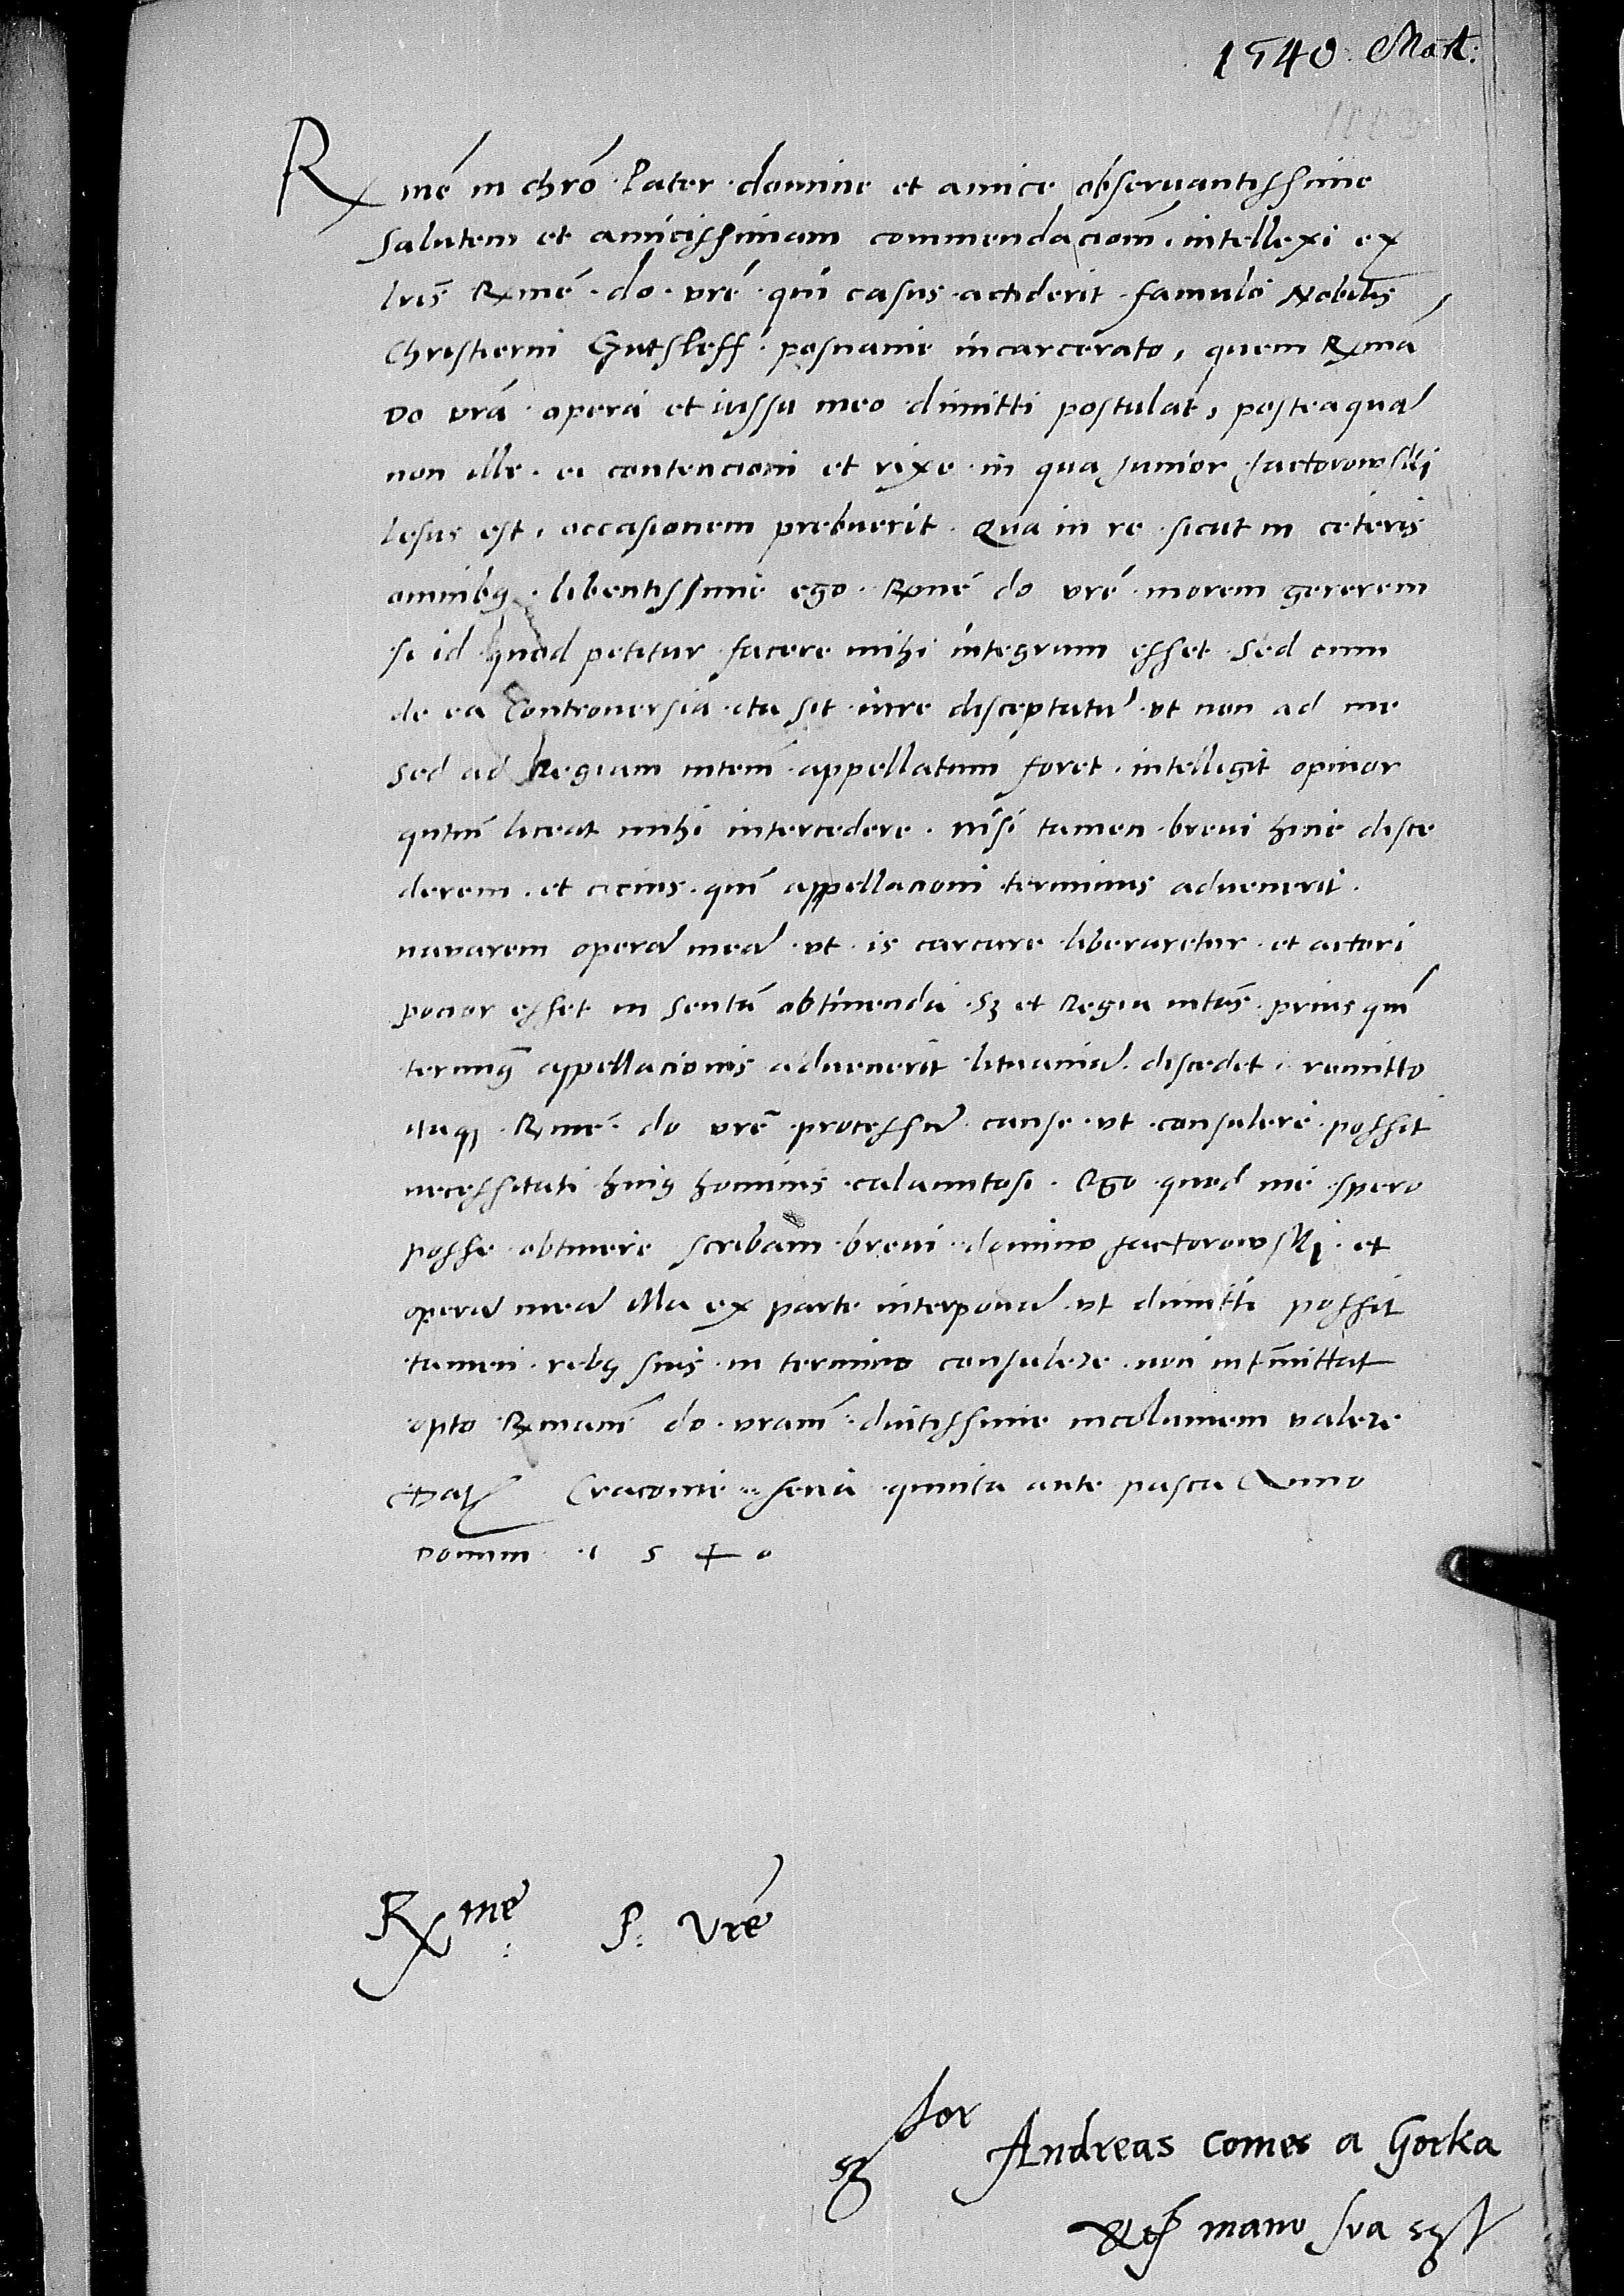 1540. Mart:
Rme in chro Pater domine et amice observantissime
salutem et amicissimam commendaciom. intellexi ex
lris Rme. do. vre qui casus acciderit famulo Nobilis
Christierni Gutsleff posnanie incarcerato, quem Rma
do vra opera et iussu meo dimitti postulat, posteaqua
non ille ei contencioni et rixe in qua Junior Jactorowski
lesus est, occasionem prebuerit. Qua in re sicut in ceteris
omnibq libentissime ego Rme do vre morem gererem
si id quod petitur facere mihi integrum esset sed cum
de ea Controversia ita sit iure disceptatu vt non ad me
sed ad Regiam mtem appellatum foret. intelligit opinor
qntum liceat mihi intercedere. nisi tamen brevi hinc disce
derem. et cicius qm appellacioni terminus advenerit.
navarem opera mea vt is carcere liberaretur et actori
pocior esset in sentia obtinendi sz et Regia mtas prius qm
terminq appellacionis advenerit lituania discedet. remitto
itaq Rme do vre processu cause vt consulere possit
necessitati huiq hominis calamitosi. Ego quod me spero
posse obtinere scribam brevi domino Jactorowski et
opera mea illa ex parte interpona vt dimitti possit
tamen rebq suis in termino consulere non intmittat
opto Rmam do vram diutissime incolumem valere
Dat Cracovie feria quinta ante pasca Anno
Domini 1540
Rme P. Vre
Andreas comes a Gorka
manu sua sst